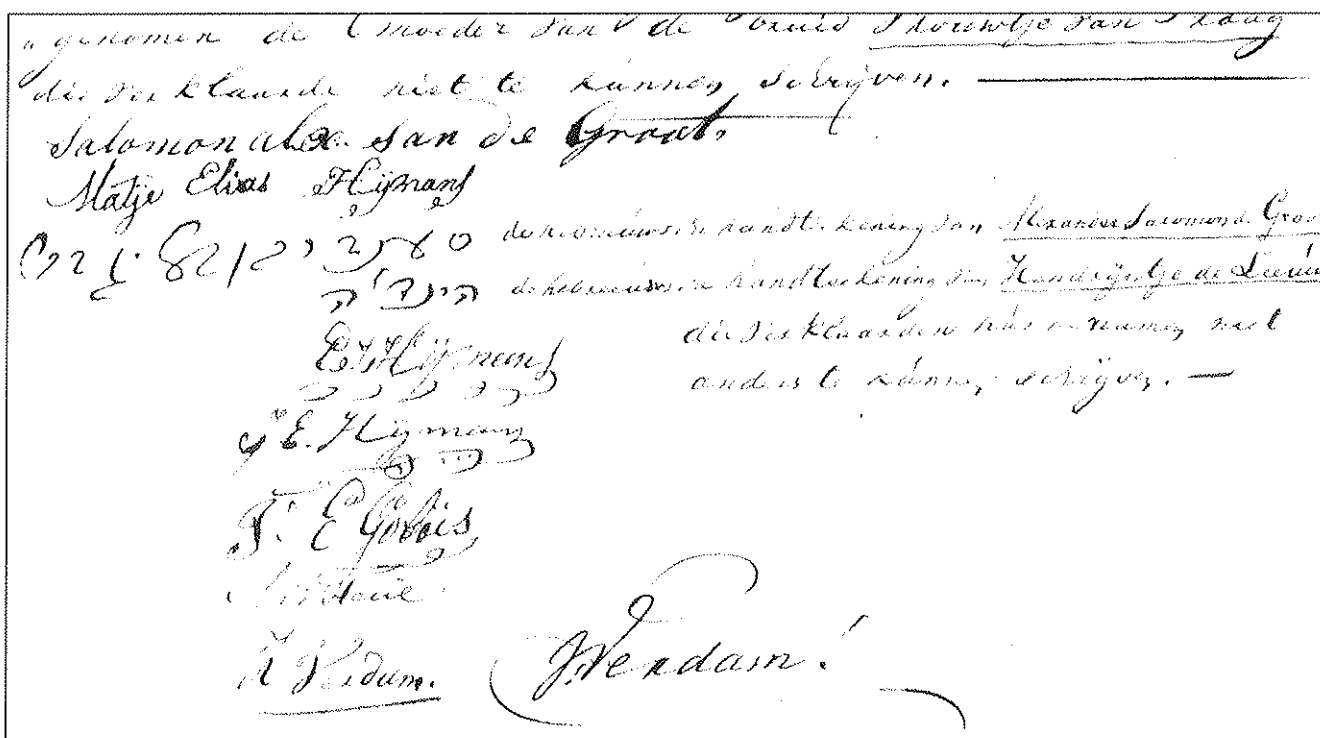 genomen de moeder van de bruid Vrouwtje van Praag
die verklaarde niet te kunnen schrijven.
Salomon Alex. van de Groot
Matje Elias Hijmans
de hebreeuwsche handteekening van Alexander Salomon de Groot
הינד'ה de hebreeuwsche handteekening van Hendrijntje de Leeuw
E. Hijmans die verklaarden hun namen niet
anders te kunnen schrijven.
E. Hijmans
E Gobais
Verdam.
Verdam